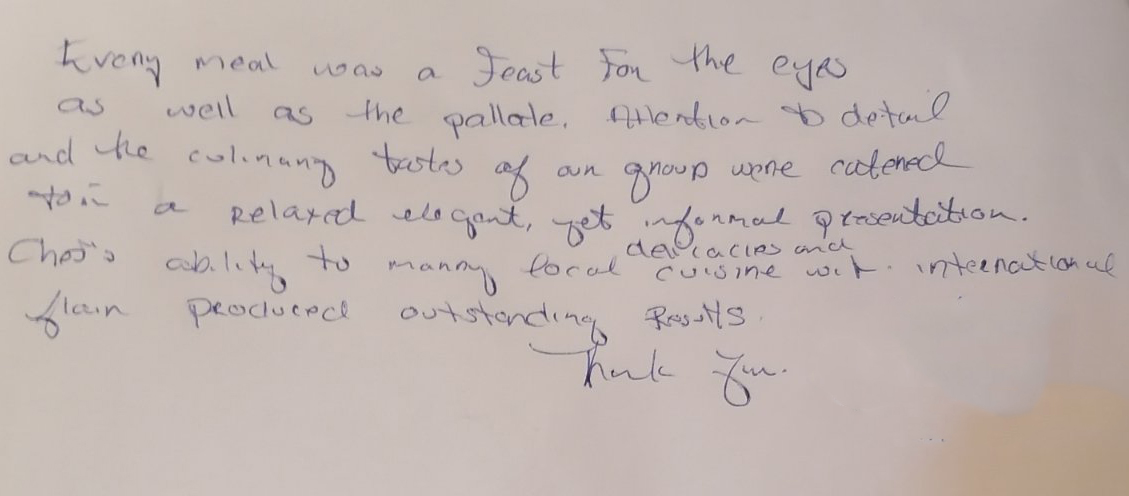 Every meal was a feast for the eyes
as well as the pallate. Attention to detail
and the culinary tastes of our group were catered
to in a relaxed elegant, yet informal presentation.
Chef's ability to marry local delicacies and cuisine with international
flair produced outstanding results.
Thank you.